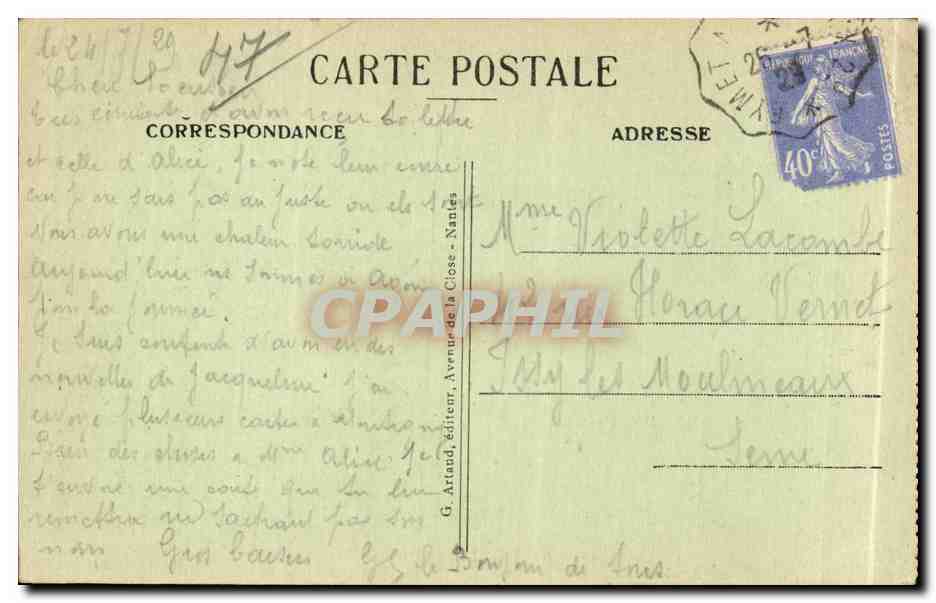 le 24/7/29
47
CARTE POSTALE
très content d'avoir reçu ta lettre
CORRESPONDANCE
ADRESSE
et celle d'Alice, je note leur
je ne sais pas au juste ou els sont
Nous avons une chaleur torride
aujourd'hui ns sommes à Agen
Je suis content d'avoir eu des
nouvelles de Jacqueline j'ai
envoyé plusieurs cartes a
des choses a Mme Alice Je
t'envoie une carte que tu lui
remettra ne sachant pas son
nom Gros baisers le Bonjour de tous
G. Artaud, éditeur, Avenue de la Close - Nantes
EYMET A
25 - 7
29
REPUBLIQUE FRANÇAISE
40c
POSTES
Mme Violette Lacombe
12 rue Horace Vernet
Issy les Moulineaux
Seine
CPAPHIL